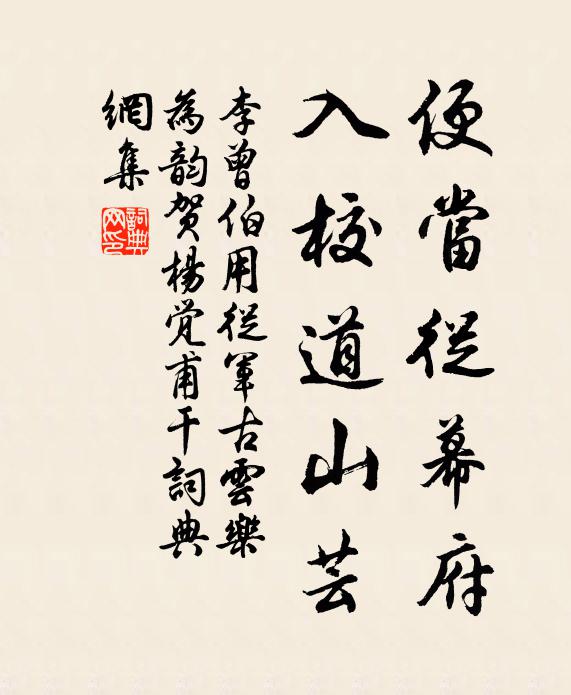 便當從幕府
入校道山芸
李曾伯用從軍古雲樂
為韵贺楊觉甫干詞典
網集
詞典网印